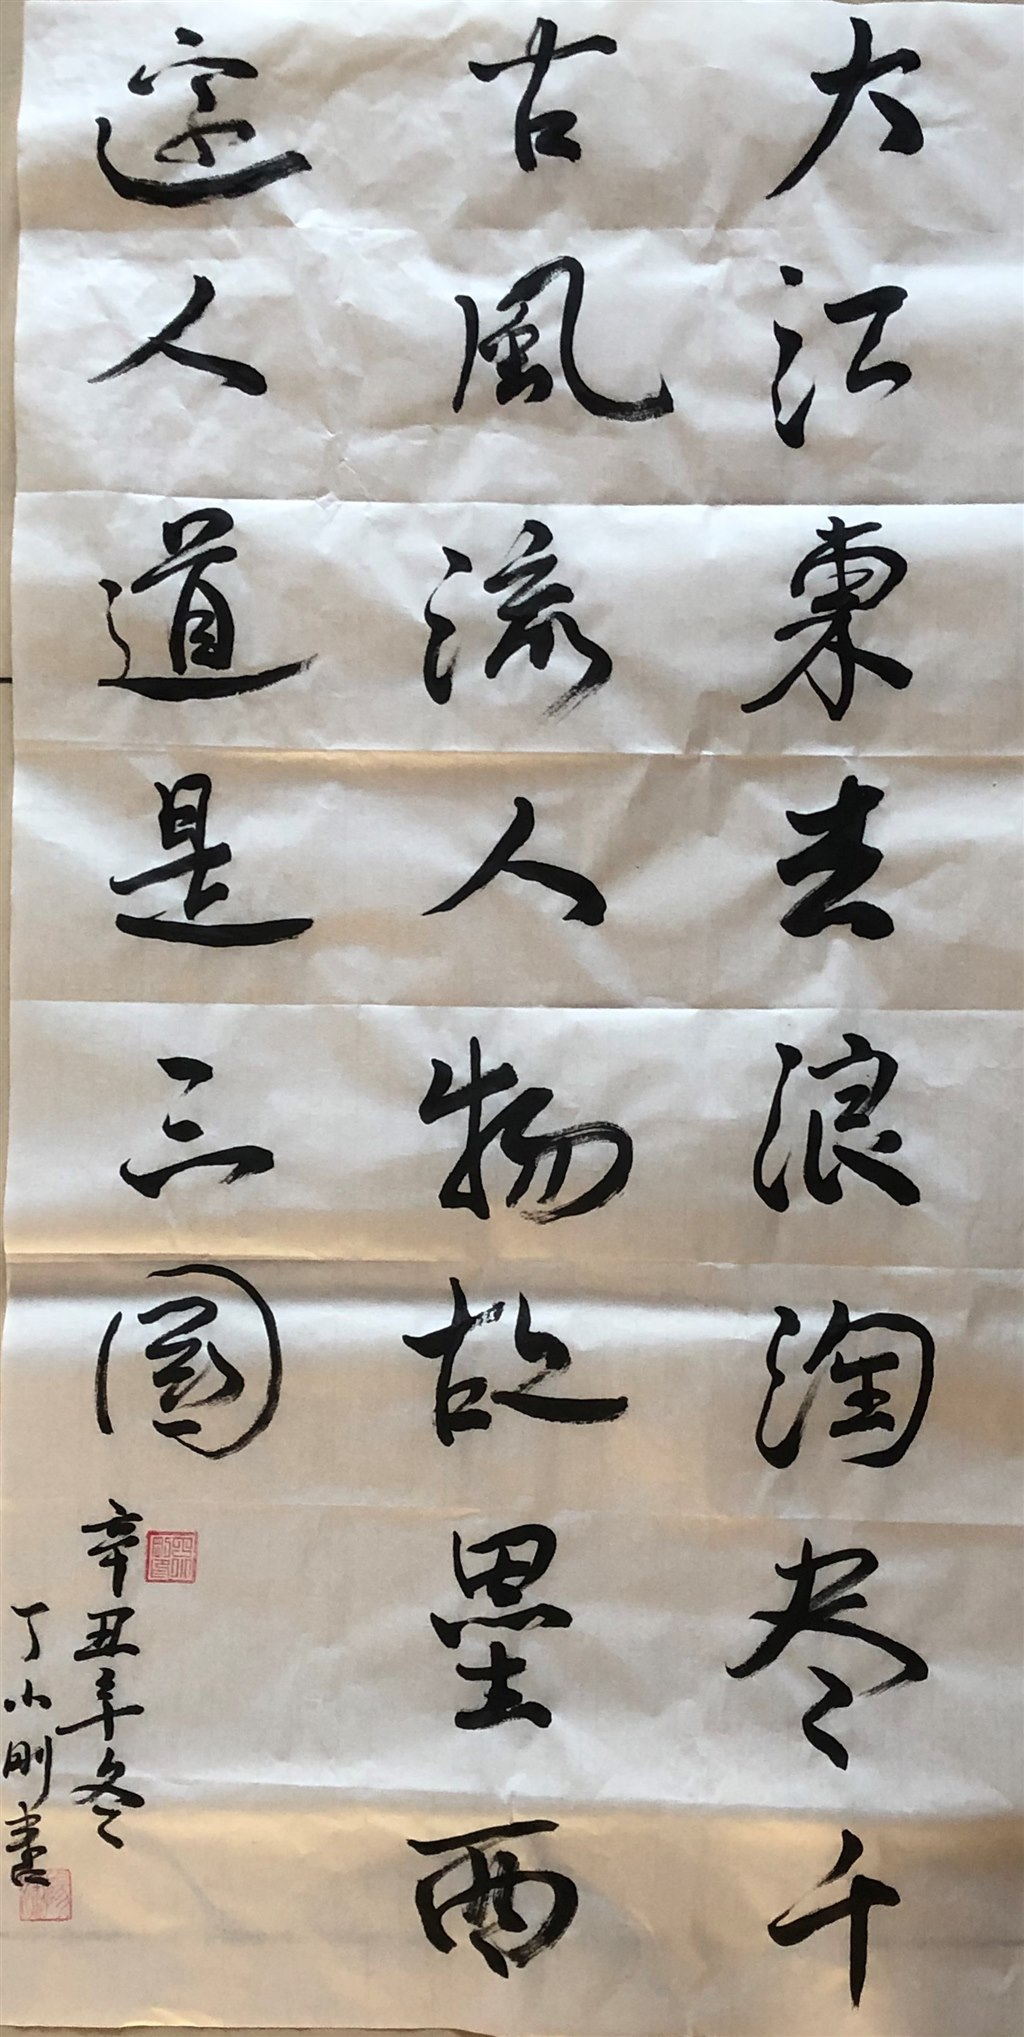 大江東去浪淘尽千
古風流人物故塁西
邊人道是三國
辛丑年冬
丁小刚書